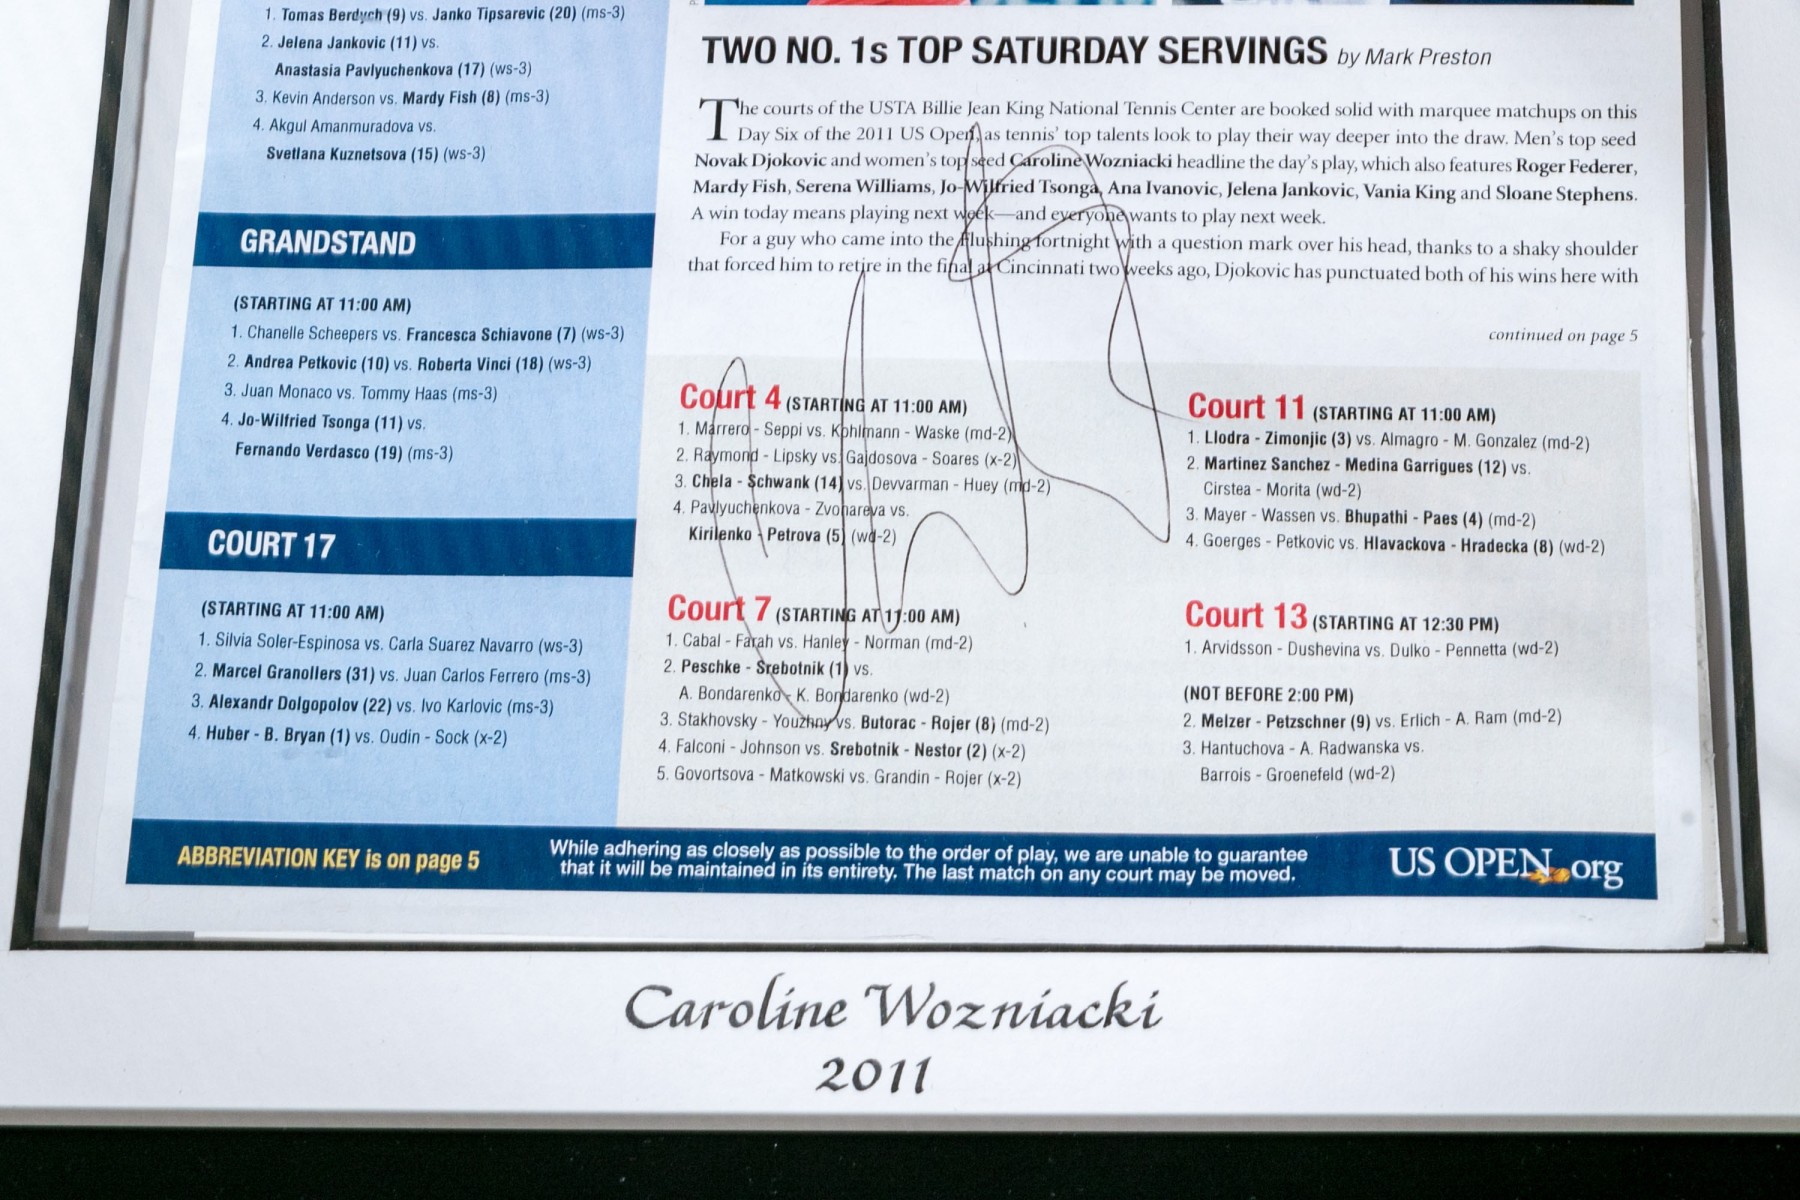 1. Tomas Berdych (9) vs. Janko Tipsarevic (20) (ms-3)
2. Jelena Jankovic (11) vs.
Anastasia Pavlyuchenkova (17) (ws-3)
3. Kevin Anderson vs. Mardy Fish (8) (ms-3)
4. Akgul Amanmuradova vs.
Svetlana Kuznetsova (15) (ws-3)
GRANDSTAND
(STARTING AT 11:00 AM)
1. Chanelle Scheepers vs. Francesca Schiavone (7) (ws-3)
2. Andrea Petkovic (10) vs. Roberta Vinci (18) (ws-3)
3. Juan Monaco vs. Tommy Haas (ms-3)
4. Jo-Wilfried Tsonga (11) vs.
Fernando Verdasco (19) (ms-3)
COURT 17
(STARTING AT 11:00 AM)
1. Silvia Soler-Espinosa vs. Carla Suarez Navarro (ws-3)
2. Marcel Granollers (31) vs. Juan Carlos Ferrero (ms-3)
3. Alexandr Dolgopolov (22) vs. Ivo Karlovic (ms-3)
4. Huber - B. Bryan (1) vs. Oudin - Sock (x-2)
TWO NO. 1s TOP SATURDAY SERVINGS by Mark Preston
The courts of the USTA Billie Jean King National Tennis Center are booked solid with marquee matchups on this
Day Six of the 2011 US Open, as tennis' top talents look to play their way deeper into the draw. Men's top seed
Novak Djokovic and women's top seed Caroline Wozniacki headline the day's play, which also features Roger Federer,
Mardy Fish, Serena Williams, Jo-Wilfried Tsonga, Ana Ivanovic, Jelena Jankovic, Vania King and Sloane Stephens.
A win today means playing next week—and everyone wants to play next week.
For a guy who came into the Flushing fortnight with a question mark over his head, thanks to a shaky shoulder
that forced him to retire in the final at Cincinnati two weeks ago, Djokovic has punctuated both of his wins here with
continued on page 5
Court 4 (STARTING AT 11:00 AM)
1. Marrero - Seppi vs. Kohlmann - Waske (md-2)
2. Raymond - Lipsky vs. Gajdosova - Soares (x-2)
3. Chela - Schwank (14) vs. Devvarman - Huey (md-2)
4. Pavlyuchenkova - Zvonareva vs.
Kirilenko - Petrova (5) (wd-2)
Court 7 (STARTING AT 11:00 AM)
1. Cabal - Farah vs. Hanley - Norman (md-2)
2. Peschke - Srebotnik (1) vs.
A. Bondarenko - K. Bondarenko (wd-2)
3. Stakhovsky - Youzhny vs. Butorac - Rojer (8) (md-2)
4. Falconi - Johnson vs. Srebotnik - Nestor (2) (x-2)
5. Govortsova - Matkowski vs. Grandin - Rojer (x-2)
Court 11 (STARTING AT 11:00 AM)
1. Llodra - Zimonjic (3) vs. Almagro - M. Gonzalez (md-2)
2. Martinez Sanchez - Medina Garrigues (12) vs.
Cirstea - Morita (wd-2)
3. Mayer - Wassen vs. Bhupathi - Paes (4) (md-2)
4. Goerges - Petkovic vs. Hlavackova - Hradecka (8) (wd-2)
Court 13 (STARTING AT 12:30 PM)
1. Arvidsson - Dushevina vs. Dulko - Pennetta (wd-2)
(NOT BEFORE 2:00 PM)
2. Melzer - Petzschner (9) vs. Erlich - A. Ram (md-2)
3. Hantuchova - A. Radwanska vs.
Barrois - Groenefeld (wd-2)
ABBREVIATION KEY is on page 5
While adhering as closely as possible to the order of play, we are unable to guarantee
that it will be maintained in its entirety. The last match on any court may be moved.
US OPEN.org
Caroline Wozniacki
2011